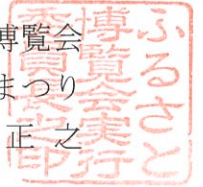 博覧会
まつり
正 之
ふるさと
博覧会実行
委員長之印